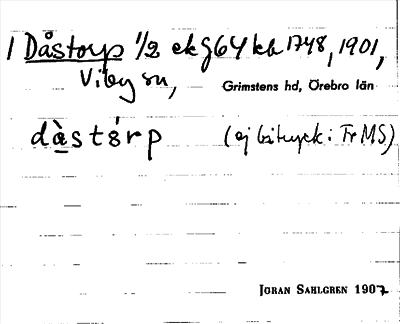 1 Dåstorp 1/2 ek g 64 kh 1748, 1901,
Viby sn,
Grimstens hd, Örebro län
dàstórp (ej bitryck: Fr MS)
JÖRAN SAHLGREN 1907